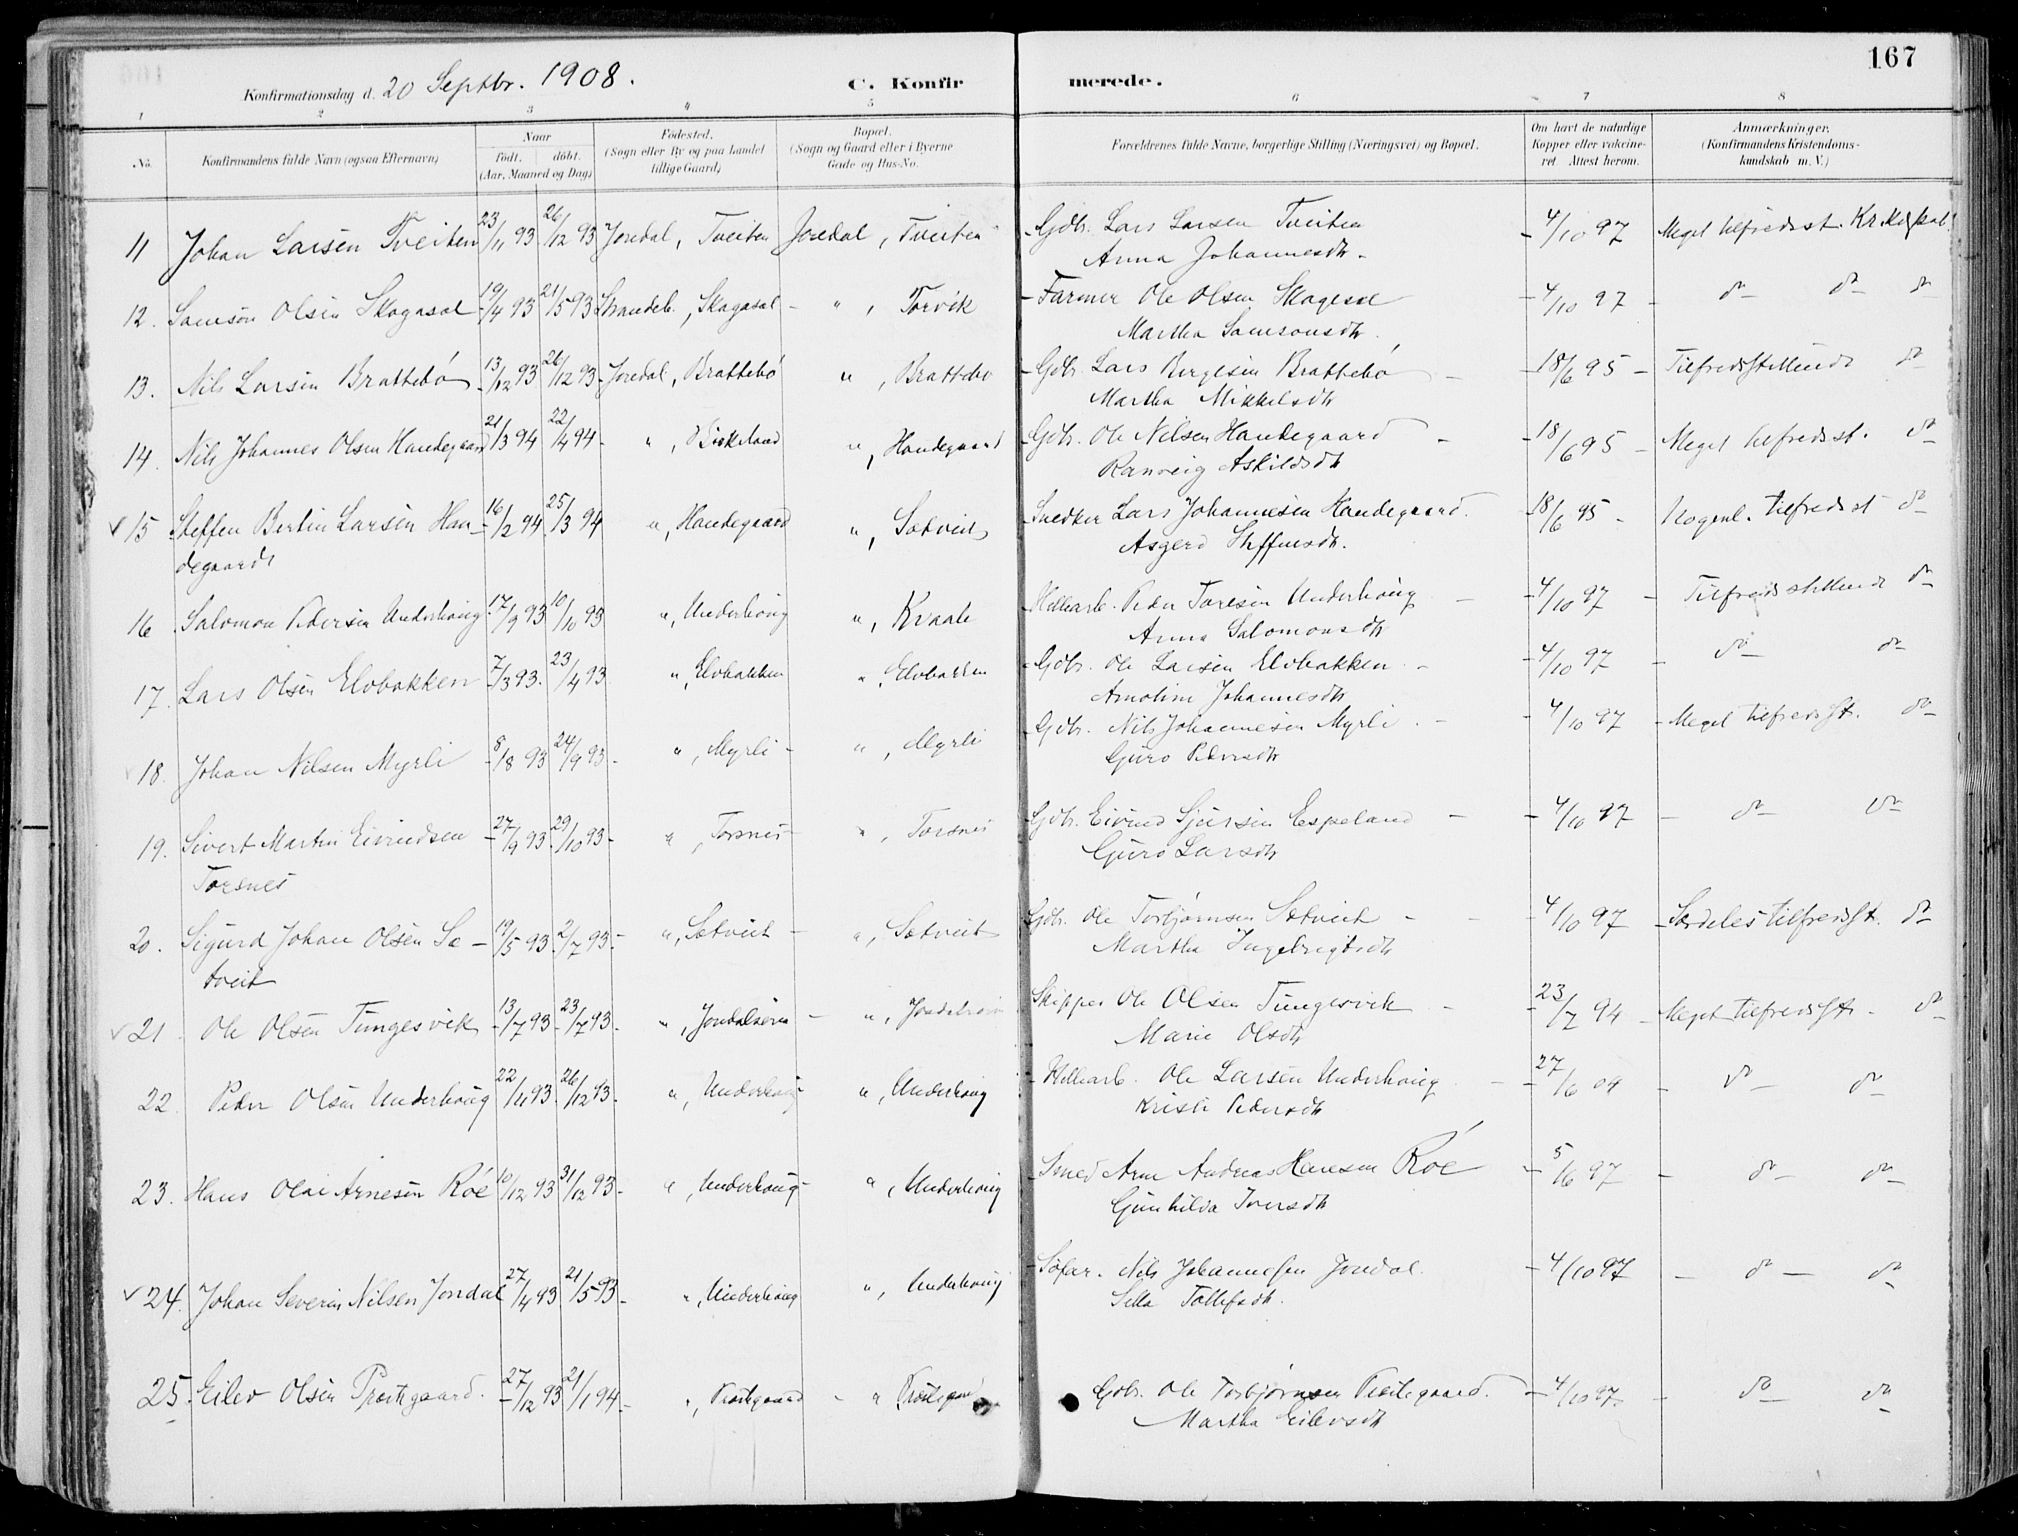 167
Konfirmationsdag d. 20 Septbr. 1908.
C. Konfirmerede.
1 2 3 4 5 6 7 8
No. Konfirmandens fulde Navn (ogsaa Efternavn) Naar födt. döbt. (Aar, Maaned og Dag) Födested. (Sogn eller By og paa Landet tillige Gaard) Bopæl. (Sogn og Gaard eller i Byerne Gade og Hus-No. Forældrenes fulde Navne, borgerlige Stilling (Næringsvei) og Bopæl. Om havt de naturlige Kopper eller vakcineret. Attest herom. Anmærkninger. (Konfirmandens Kristendomskundskab m. V.)
11 Johan Larsen Tveiten 23/11 93 26/12 93 Jondal, Tveiten Jondal, Tveiten Gdbr. Lars Larsen Tveiten 4/10 97 Meget tilfredsst. Kr.
Anna Johannesdtr.
12. Samson Olsen Skogasal 19/4 93 21/5 93 Strandeb., Skogasal - ", Torvik Farmer Ole Olsen 4/10 97 - do - do do
Martha Samsonsdtr.
13. Nils Larsen Brattebö 13/12 93 26/12 93 Jondal, Brattebö ", Brattebö Gdbr. Lars Brattebö 18/6 95 - Tilfredsstillende do
Martha Mikkelsdtr
14. Nils Johannes Olsen Handegaard 21/3 94 22/4 94 - ", Birkeland ", Handegaard Gdbr. Ole Nilsen Handegaard - 18/6 95 - Meget tilfredsst. do
Ranveig Askildsdtr
15 Steffen Bertin Larsen Han- 16/2 94. 25/3 94 ", Handegaard ", Sætveit Snedker Lars Johannesen Handegaard. 18/6 95 - Nogenl. tilfredsst do
degaard Asgerd Steffensdtr.
16 Salomon Pedersen Underhoug 17/9 93 10/10 93 ", Underhoug ", Kvaale Peder Toresen Underhoug - 4/10 97 - Tilfredsstillende do
Anna Salomonsdtr
17. Lars Olsen Elvbakken 7/3 93. 23/4 93 ", Elvbakken ", Elvbakken Gdbr. Ole Larsen Elvbakken - 4/10 97 - do - do
Johannesdtr
18. Johan Nilsen Myrli 8/8 93 24/9 93 - ", Myrli - ", Myrli Gdbr. Nils Johannesen Myrli - 4/10 97 - Meget tilfredsst. do
Guro Pedersdtr
19. Sivert Martin Eivindsen 27/9 93. 29/10 93 - ", Torsnes - ", Torsnes Gdbr. Eivind Sjursen Espeland - 4/10 97 - do - do
Torsnes Guro Larsdtr
20. Sigurd Johan Olsen Sæ- 19/5 93. 2/7 93 - ", Sætveit - ", Sætveit Gdbr. Ole Torbjørnsen Sætveit - 4/10 97 - Særdeles tilfredsst. do
tveit Martha Ingebrigtsdtr
21 Ole Olsen Tungesvik 13/7 93 23/7 93 - ", Jondalsøren - ", Jondalsøren Skipper Ole Olsen Tungesvik - 23/7 94 - Meget tilfredsst. do
Marie Olsdtr
22 Peder Olsen Underhoug 22/11 93. 26/12 93 - ", Underhoug ", Underhoug Ole Larsen Underhoug - 27/6 - do - do
Kristi Pedersdtr
23. Hans Olai Arnesen Röe 10/12 93 31/12 93 - ", Underhoug - ", Underhoug Smed Arne Andreas Hansen Röe - 5/6 97 - do - do
Gunhilda Iversdtr
24. Johan Severin Nilsen Jondal 27/4 93 21/5 93 - ", Underhoug ", Underhoug Søfar. Nils Johannessen Jondal. - 4/10 97 - do - do
25. Eilev Olsen Prestegaard. 27/12 93 21/1 94 - ", Prestegaard - " Prestegaard Gdbr. Ole Torbjørnsen Prestegaard. - 4/10 97 - do - do
Martha Eilevsdtr